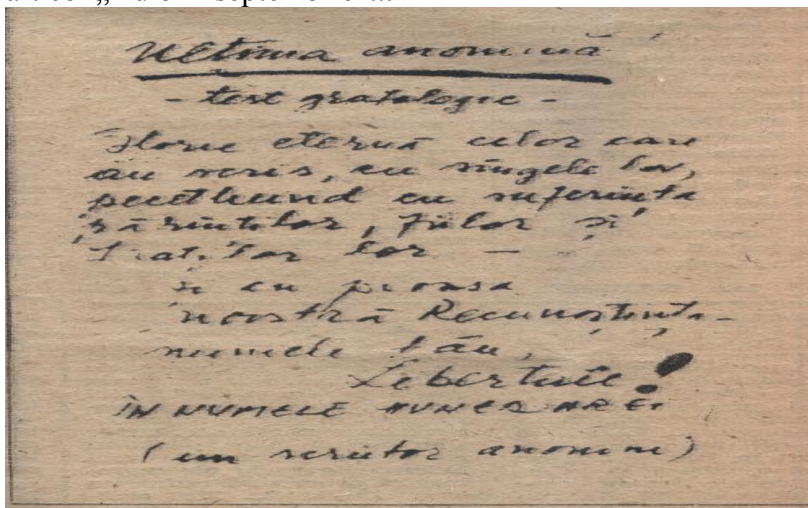 Ultima anonimă
- test grafologic -
Glorie eternă celor care
au scris, cu sîngele lor,
pecetluind cu suferința
părinților, fiilor și
fraților lor —
și cu pioasa
noastră Recunoștință -
numele tău,
Libertate!
ÎN NUMELE
(un scriitor anonim)